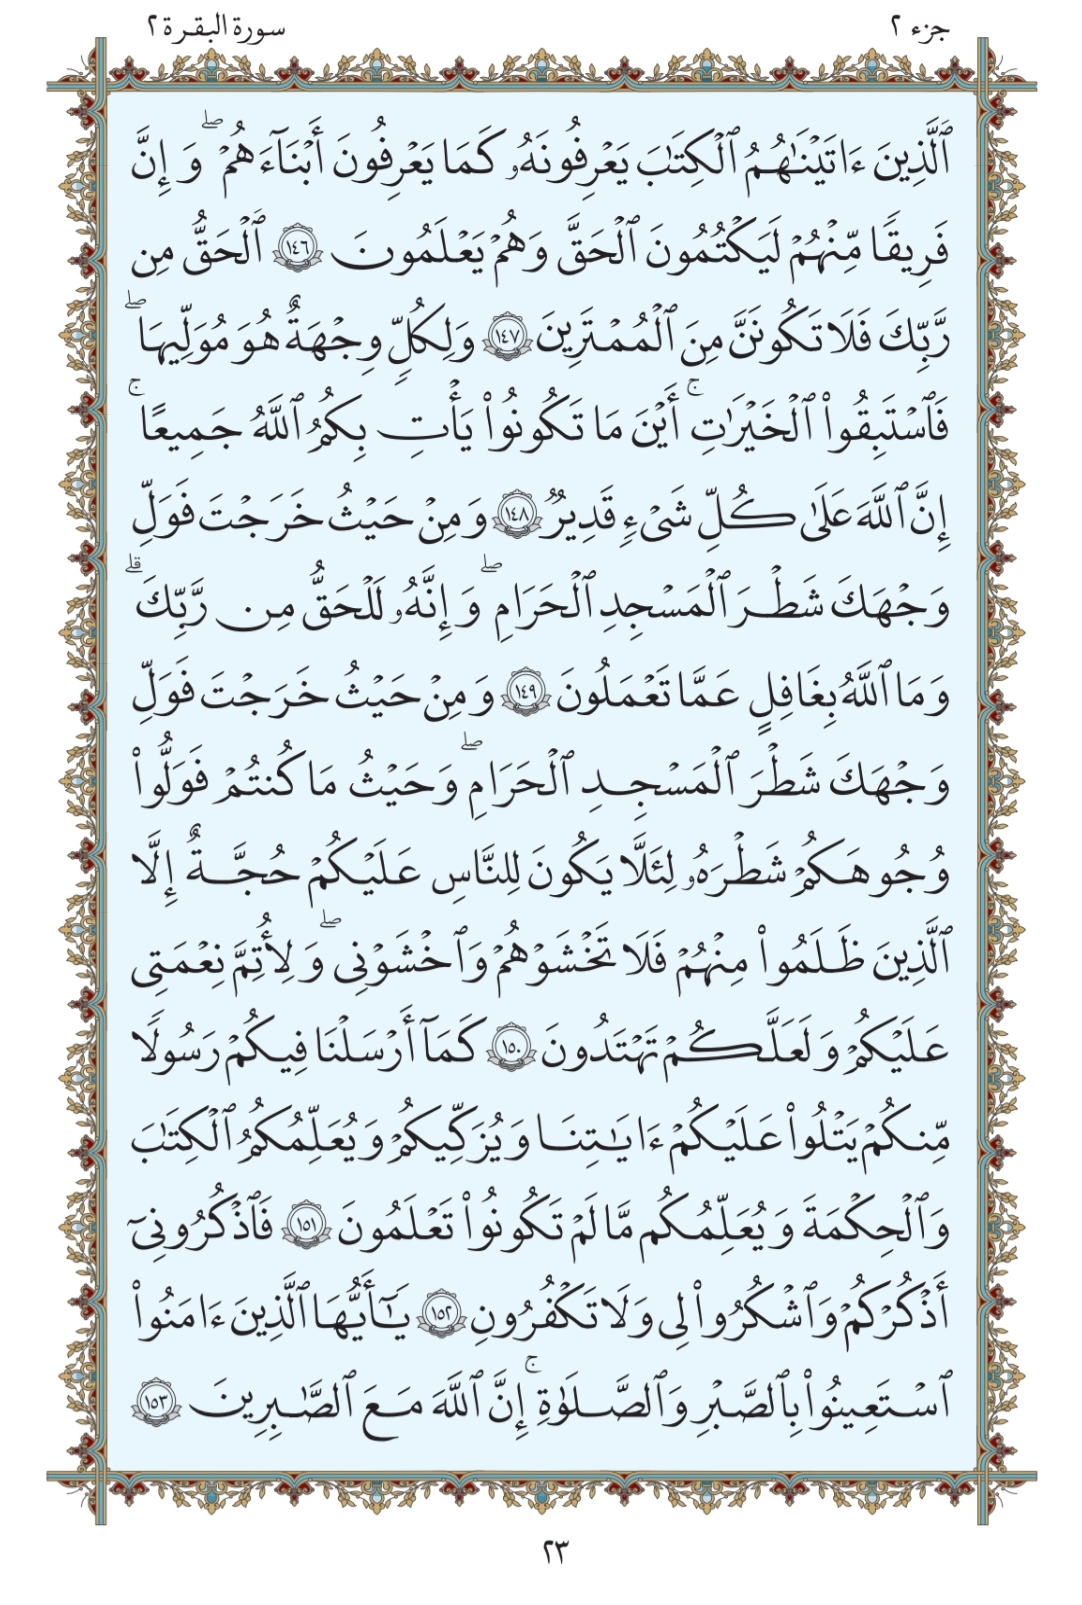 جزء ٢
سورة البقرة ٢
ٱلَّذِينَ ءَاتَيْنَٰهُمُ ٱلْكِتَٰبَ يَعْرِفُونَهُۥ كَمَا يَعْرِفُونَ أَبْنَآءَهُمْ ۖ وَإِنَّ
فَرِيقًا مِّنْهُمْ لَيَكْتُمُونَ ٱلْحَقَّ وَهُمْ يَعْلَمُونَ ١٤٦ ٱلْحَقُّ مِن
رَّبِّكَ فَلَا تَكُونَنَّ مِنَ ٱلْمُمْتَرِينَ ١٤٧ وَلِكُلٍّ وِجْهَةٌ هُوَ مُوَلِّيهَا ۖ
فَٱسْتَبِقُوا۟ ٱلْخَيْرَٰتِ ۚ أَيْنَ مَا تَكُونُوا۟ يَأْتِ بِكُمُ ٱللَّهُ جَمِيعًا ۚ
إِنَّ ٱللَّهَ عَلَىٰ كُلِّ شَىْءٍ قَدِيرٌ ١٤٨ وَمِنْ حَيْثُ خَرَجْتَ فَوَلِّ
وَجْهَكَ شَطْرَ ٱلْمَسْجِدِ ٱلْحَرَامِ ۖ وَإِنَّهُۥ لَلْحَقُّ مِن رَّبِّكَ ۗ
وَمَا ٱللَّهُ بِغَافِلٍ عَمَّا تَعْمَلُونَ ١٤٩ وَمِنْ حَيْثُ خَرَجْتَ فَوَلِّ
وَجْهَكَ شَطْرَ ٱلْمَسْجِدِ ٱلْحَرَامِ ۖ وَحَيْثُ مَا كُنتُمْ فَوَلُّوا۟
وُجُوهَكُمْ شَطْرَهُۥ لِئَلَّا يَكُونَ لِلنَّاسِ عَلَيْكُمْ حُجَّةٌ إِلَّا
ٱلَّذِينَ ظَلَمُوا۟ مِنْهُمْ فَلَا تَخْشَوْهُمْ وَٱخْشَوْنِى ۖ وَلِأُتِمَّ نِعْمَتِى
عَلَيْكُمْ وَلَعَلَّكُمْ تَهْتَدُونَ ١٥٠ كَمَآ أَرْسَلْنَا فِيكُمْ رَسُولًا
مِّنكُمْ يَتْلُوا۟ عَلَيْكُمْ ءَايَٰتِنَا وَيُزَكِّيكُمْ وَيُعَلِّمُكُمُ ٱلْكِتَٰبَ
وَٱلْحِكْمَةَ وَيُعَلِّمُكُم مَّا لَمْ تَكُونُوا۟ تَعْلَمُونَ ١٥١ فَٱذْكُرُونِىٓ
أَذْكُرْكُمْ وَٱشْكُرُوا۟ لِى وَلَا تَكْفُرُونِ ١٥٢ يَٰٓأَيُّهَا ٱلَّذِينَ ءَامَنُوا۟
ٱسْتَعِينُوا۟ بِٱلصَّبْرِ وَٱلصَّلَوٰةِ ۚ إِنَّ ٱللَّهَ مَعَ ٱلصَّٰبِرِينَ ١٥٣
٢٣